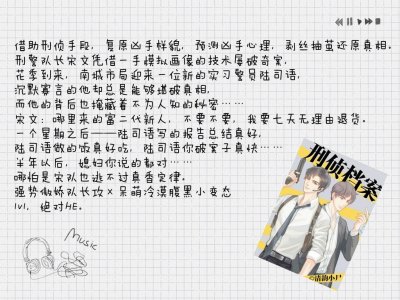 借助刑侦手段，复原凶手样貌，预测凶手心理，剥丝抽茧还原真相。
刑警队长宋文凭借一手模拟画像的技术屡破奇案，
花季到来，南城市局迎来一位新的实习警员陆司语，
沉默寡言的他却总是能够堪破真相，
而他的背后也掩藏着不为人知的秘密……
宋文：哪里来的富二代新人，不要不要，我要七天无理由退货。
一个星期之后——陆司语写的报告总结真好，
陆司语做的饭真好吃，陆司语你破案子真快……
半年以后，媳妇你说的都对……
哪怕是宋队也逃不过真香定律。
强势傲娇队长攻×呆萌冷漠腹黑小变态
1V1，绝对HE。
Music
刑侦档案
清韵小尸